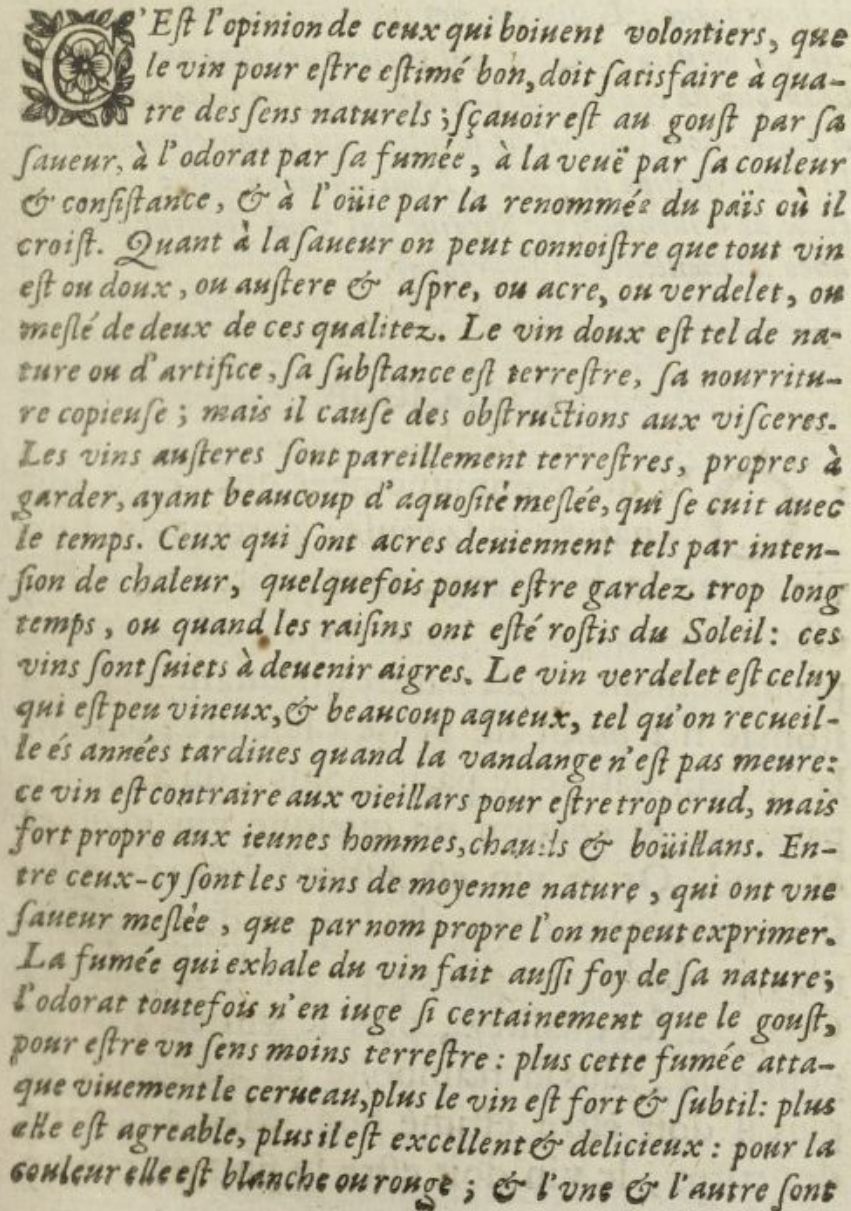 C'Eſt l'opinion de ceux qui boiuent volontiers, que
le vin pour eſtre eſtimé bon, doit ſatisfaire à qua-
tre des ſens naturels ; ſçauoir eſt au gouſt par ſa
ſaueur, à l'odorat par ſa fumée, à la veuë par ſa couleur
& conſiſtance, & à l'oüie par la renommée du païs où il
croiſt. Quant à la ſaueur on peut connoiſtre que tout vin
eſt ou doux, ou auſtere & aſpre, ou acre, ou verdelet, ou
meſlé de deux de ces qualitez. Le vin doux eſt tel de na-
ture ou d'artifice, ſa ſubſtance eſt terreſtre, ſa nourritu-
re copieuſe ; mais il cauſe des obſtructions aux viſceres.
Les vins auſteres ſont pareillement terreſtres, propres à
garder, ayant beaucoup d'aquoſité meſlée, qui ſe cuit auec
le temps. Ceux qui ſont acres deuiennent tels par inten-
ſion de chaleur, quelquefois pour eſtre gardez trop long
temps, ou quand les raiſins ont eſté roſtis du Soleil : ces
vins ſont ſuiets à deuenir aigres. Le vin verdelet eſt celuy
qui eſt peu vineux, & beaucoup aqueux, tel qu'on recueil-
le és années tardiues quand la vandange n'eſt pas meure:
ce vin eſt contraire aux vieillars pour eſtre trop crud, mais
fort propre aux ieunes hommes, chauds & boüillans. En-
tre ceux-cy ſont les vins de moyenne nature, qui ont vne
ſaueur meſlée, que par nom propre l'on ne peut exprimer.
La fumée qui exhale du vin fait auſſi foy de ſa nature;
l'odorat toutefois n'en iuge ſi certainement que le gouſt,
pour eſtre vn ſens moins terreſtre : plus cette fumée atta-
que viuement le cerueau, plus le vin eſt fort & ſubtil: plus
elle eſt agreable, plus il eſt excellent & delicieux : pour la
couleur elle eſt blanche ou rouge ; & l'vne & l'autre ſont